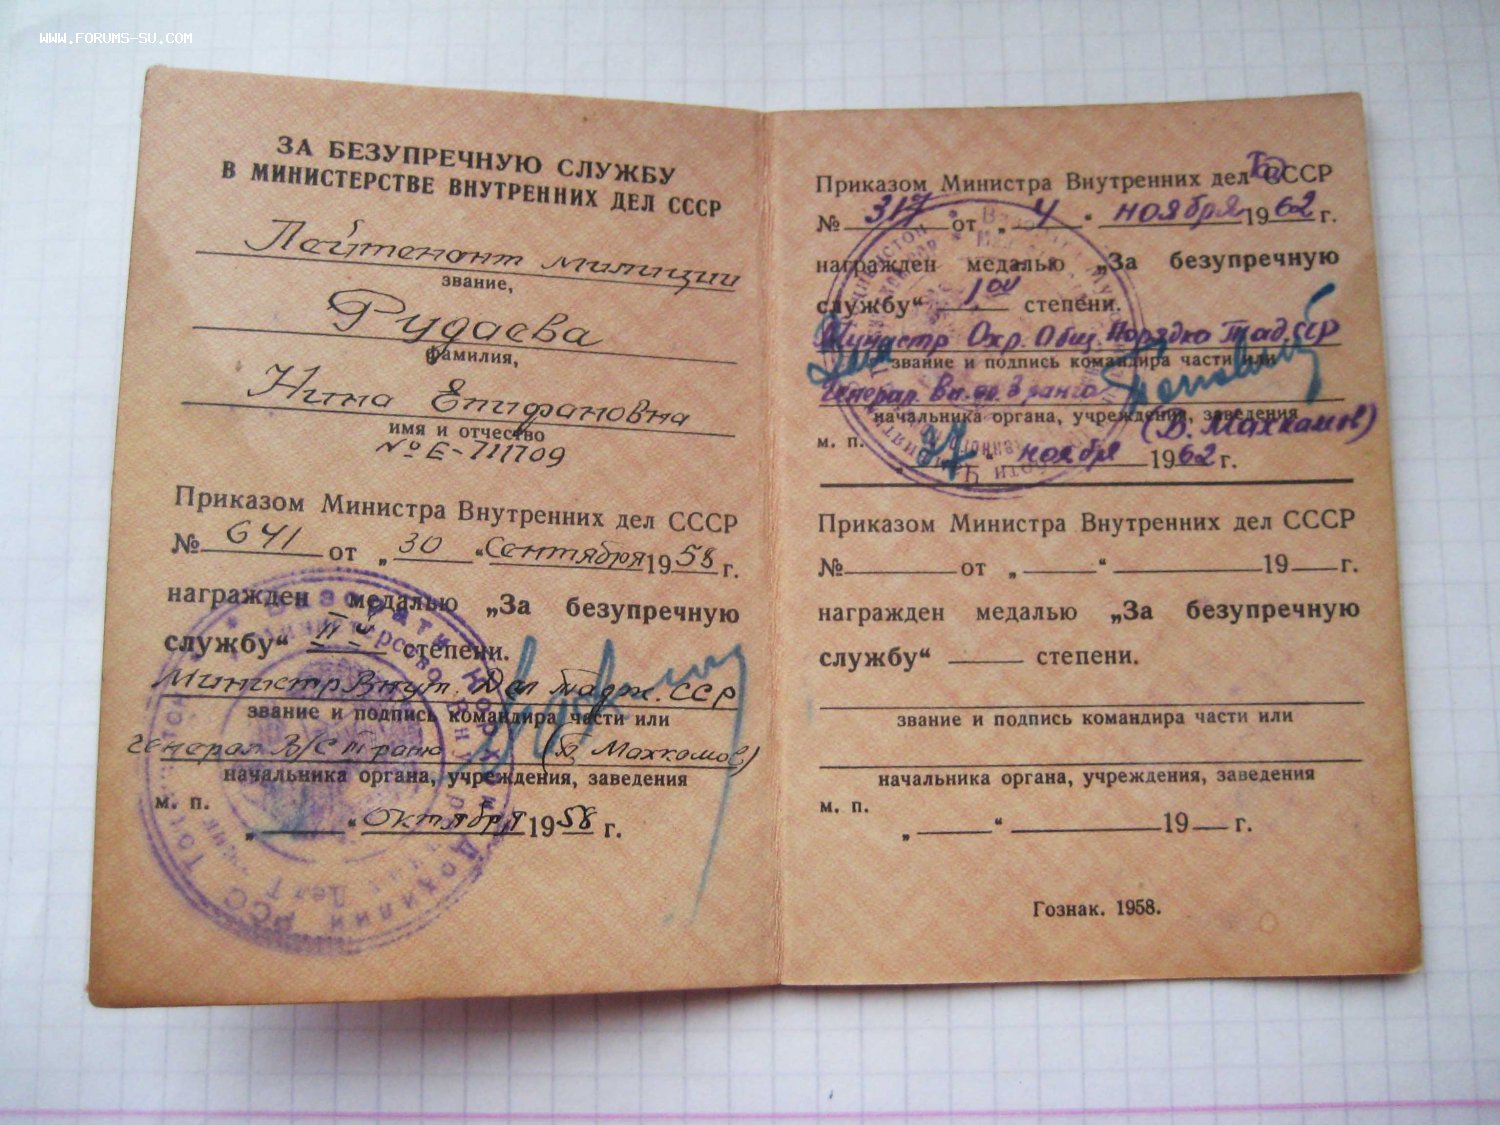 WWW.FORUMS-SU.COM
ЗА БЕЗУПРЕЧНУЮ СЛУЖБУ
В МИНИСТЕРСТВЕ ВНУТРЕННИХ ДЕЛ СССР
Лейтенант милиции
звание,
Рудаева
фамилия,
Нина Епифановна
имя и отчество
№ Е-711709
Приказом Министра Внутренних дел СССР
№ 641 от „30“ Сентября 1958 г.
награжден медалью „За безупречную
службу“ III й степени.
Министр Внут. Дел Тадж. ССР
звание и подпись командира части или
Генерал В/С III ранга (Махкамов)
начальника органа, учреждения, заведения
м. п.
„ “ Октября 1958 г.
Приказом Министра Внутренних дел СССР
№ 317 от „4“ ноября 1962 г.
награжден медалью „За безупречную
службу“ 1ой степени.
Министр Охр. Общ. Порядка Тад. ССР
звание и подпись командира части или
Генерал Вн. сл. 3 ранга
начальника органа, учреждения, заведения
(В. Махкамов)
м. п.
„27“ ноября 1962 г.
Приказом Министра Внутренних дел СССР
№ от „ “ 19 г.
награжден медалью „За безупречную
службу“ степени.
звание и подпись командира части или
начальника органа, учреждения, заведения
м. п.
„ “ 19 г.
Гознак. 1958.